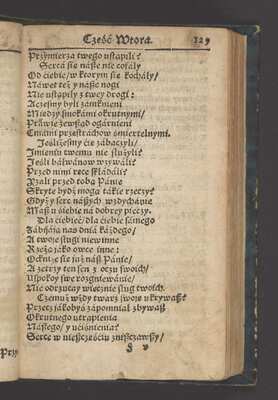 Część Wtora. 129
Przymierza twego ustąpili?
Sercá się náße nie cofáły
Od ciebie/ w ktorym się kocháły/
Náwet też y náße nogi
Nie ustąpiły z twey drogi:
Aczeßmy byli zámknieni
Miedzy smokámi okrutnymi/
Práwie zewßąd ogárnieni
Cmámi przestráchow śmiertelnymi.
Jesliżeśmy cie zábaczyli/
Jmieniu twemu nie służyli?
Jesli báłwánow wzywáli?
Przed nimi ręce składáli?
Yzali przed tobą Pánie
Skryte bydź mogą tákie rzeczy?
Gdyż y serc náßych wzdychánie
Maß ty śebie ná dobrey pieczy.
Dla ciebie/ dla ciebie sámego
Zábiiáią nas dniá káżdego/
A twoie sługi niewinne
Rzeżą iáko owce inne:
Ockniż się iuż náß Pánie/
A zetrzy ten sen z oczu swoich/
Uspokoy swe rozgniewánie/
Nie odrzucay wiecznie sług twoich.
Czemuż wżdy twarz swoię ukrywaß?
Przecz iákobyś zápomniał zbywaß
Okrutnego utrapienia
Náßego/ y uciśnienia?
Serce w nießczęściu znißczáwßy/
Przy